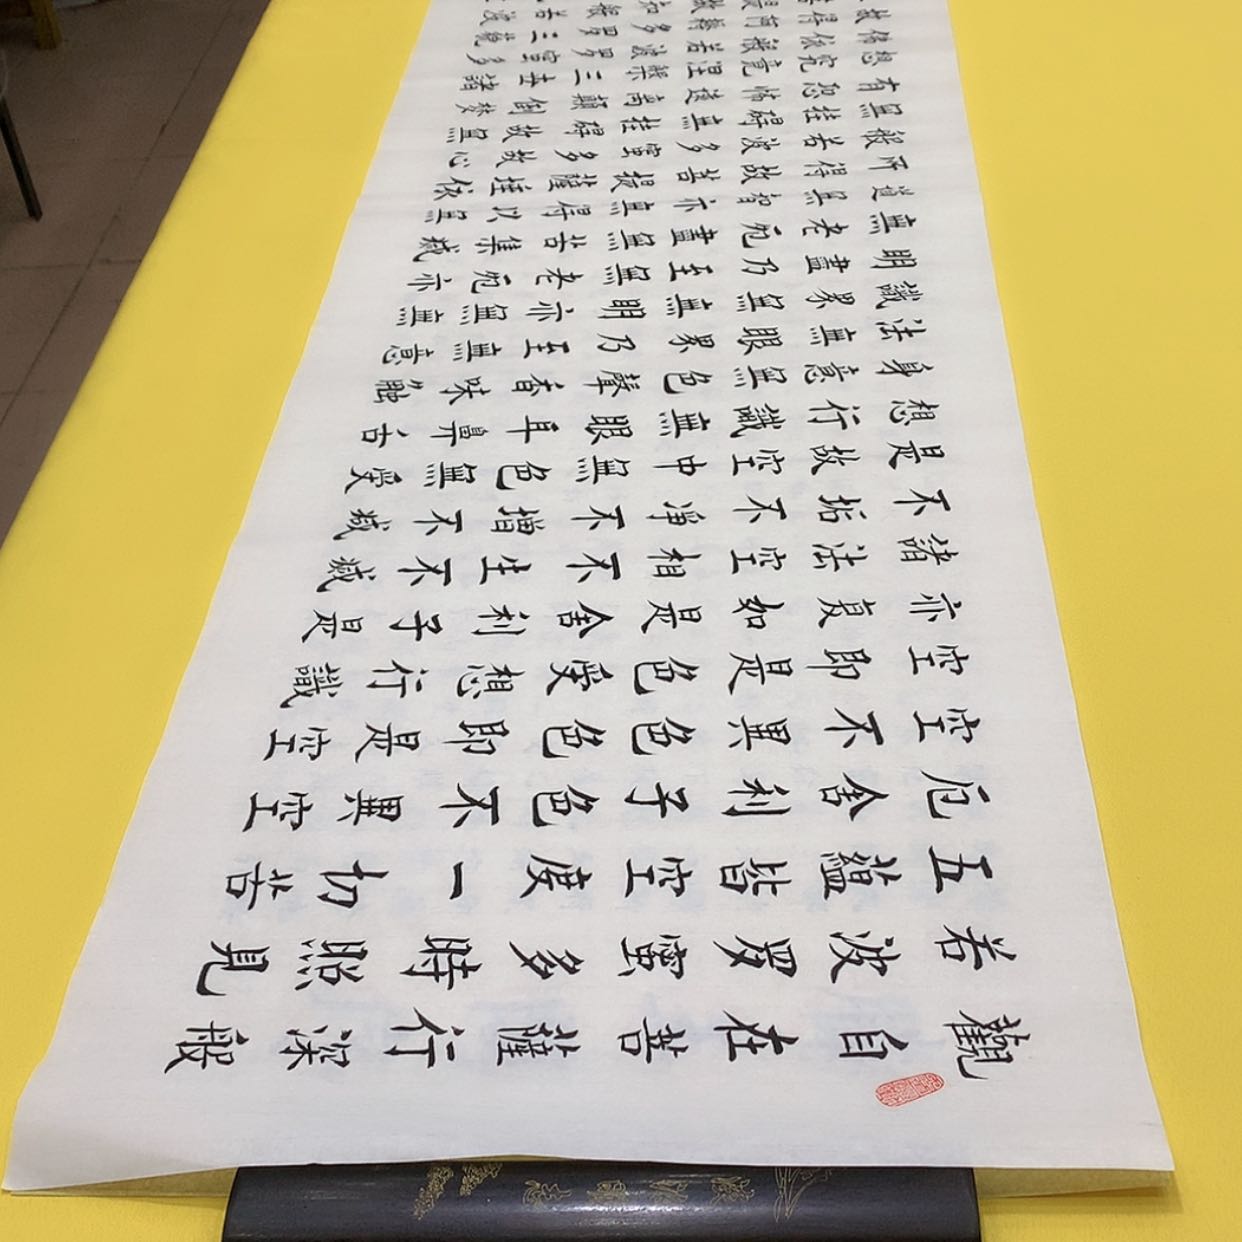 觀自在菩薩行深般
若波羅蜜多時照見
五蘊皆空度一切苦
厄舍利子色不異空
空不異色色即是空
空即是色受想行識
亦复如是舍利子是
諸法空相不生不滅
不垢不淨不增不減
是故空中無色無受
想行識無眼耳鼻舌
身意無色聲香味觸
法無眼界乃至無意
識界無無明亦無無
明盡乃至無老死亦
無老死盡無苦集滅
道無智亦無得以無
所得故菩提薩埵依
般若波羅蜜多故心
無罣礙無罣礙故無
有恐怖遠離顛倒夢
想究竟涅槃三世諸
佛依般若波羅蜜多
故得阿耨多羅三藐